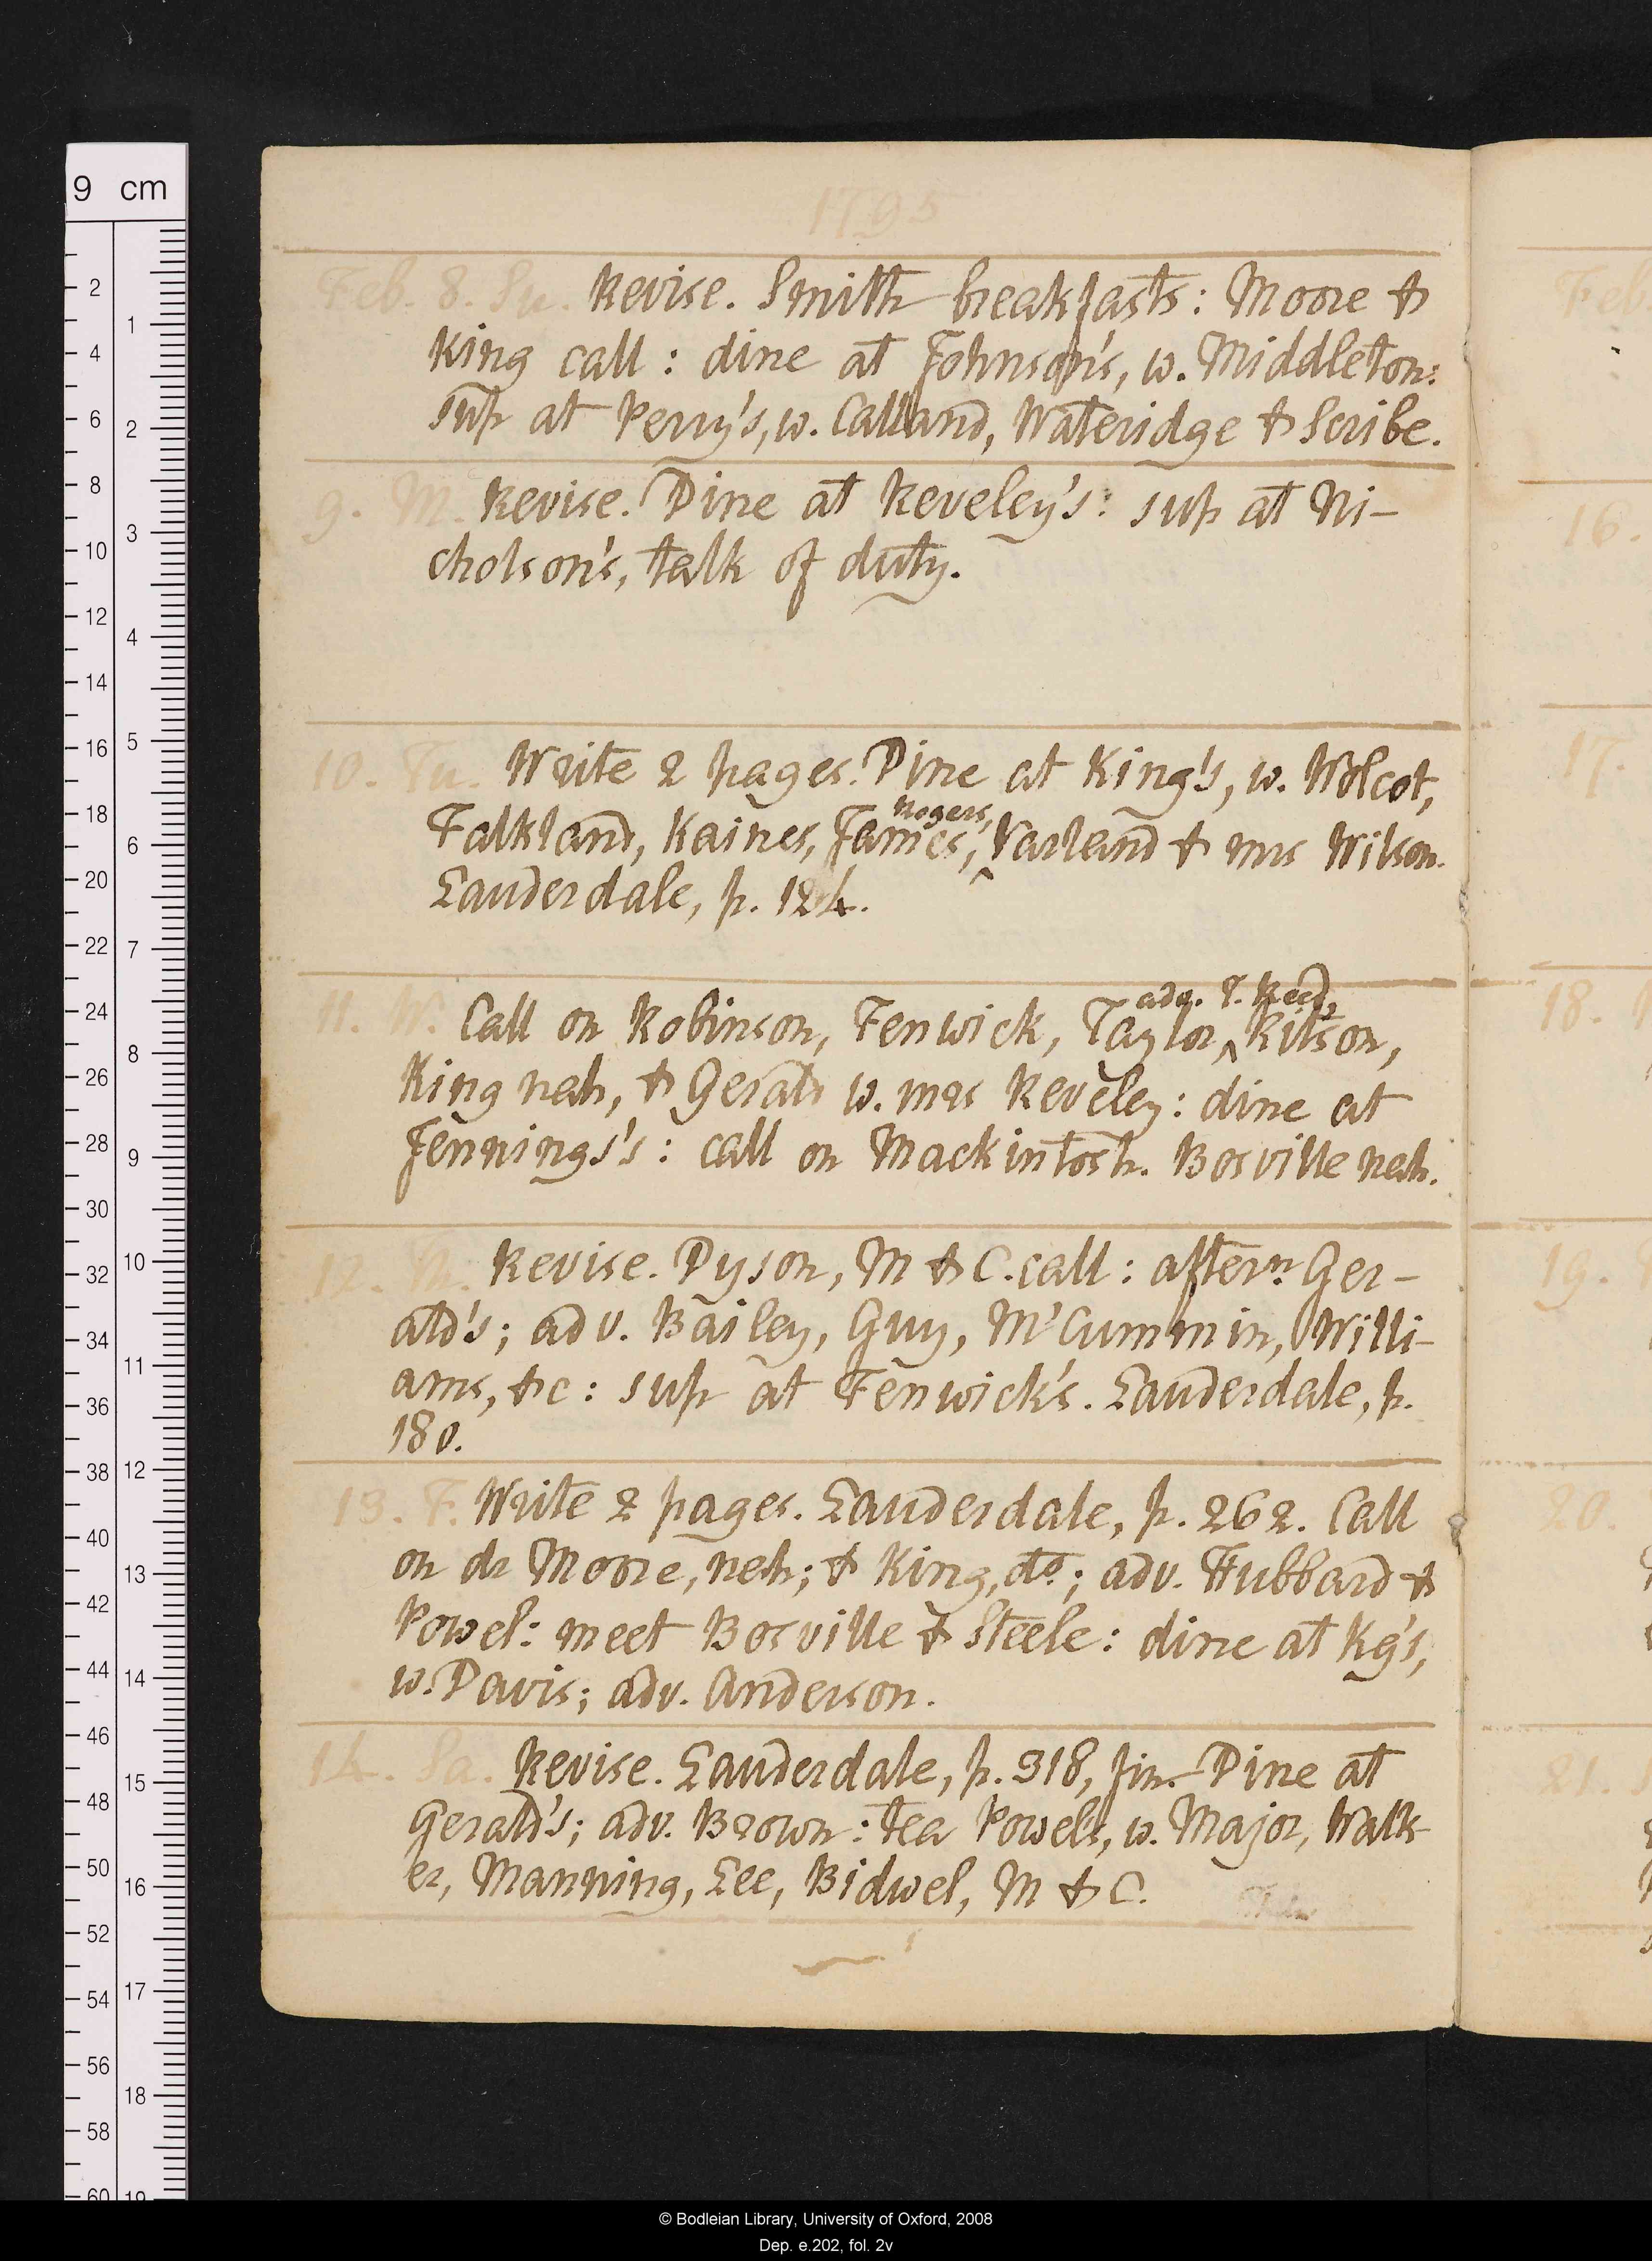 1795
Feb. 8. Su. Revise. Smith breakfasts: Moore &
King call: dine at Johnson's, w. Middleton:
sup at Perry's, w. Calland, Wateridge & Scribe.
9. M. Revise. Dine at Reveley's: sup at Ni-
cholson's, talk of duty.
10. Tu. Write 2 pages. Dine at King's, w. Wolcot,
Rogers,
Falkland, Kaines, James, ^ Varland & mrs Wilson.
Lauderdale, p. 124.
adv. T. Reed,
11. W. Call on Robinson, Fenwick, Taylor, ^ Ritson,
King nah, & Gerald w. mrs Reveley: dine at
Jennings's: call on Mackintosh. Bosville nah.
12. Th. Revise. Dyson, M & C. call: aftern. Ger-
ald's; adv. Bailey, Guy, M'Cummin, Willi-
ams, &c: sup at Fenwick's. Lauderdale, p.
180.
13. F. Write 2 pages. Lauderdale, p. 262. Call
on dr Moore, nah; & King, do; adv. Hubbard &
Powel: meet Bosville & Steele: dine at Kg's,
w. Davis; adv. Anderson.
14. Sa. Revise. Lauderdale, p. 318, fin. Dine at
Gerald's; adv. Brown: tea Powels, w. Major, Walk-
er, Manning, Lee, Bidwel, M & C.
9 cm
2 4 6 8 10 12 14 16 18 20 22 24 26 28 30 32 34 36 38 40 42 44 46 48 50 52 54 56 58 60
1 2 3 4 5 6 7 8 9 10 11 12 13 14 15 16 17 18 19
Feb
16.
17.
18.
19.
20.
21.
© Bodleian Library, University of Oxford, 2008
Dep. e.202, fol. 2v